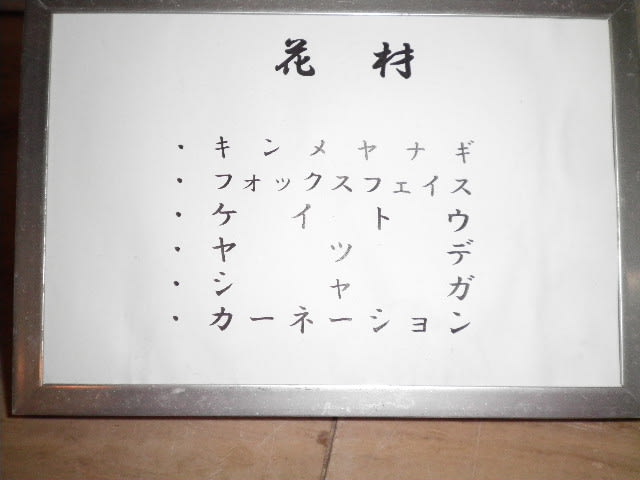 花材
・キンメヤナギ
・フォックスフェイス
・ケイトウ
・ヤツデ
・シャガ
・カーネーション